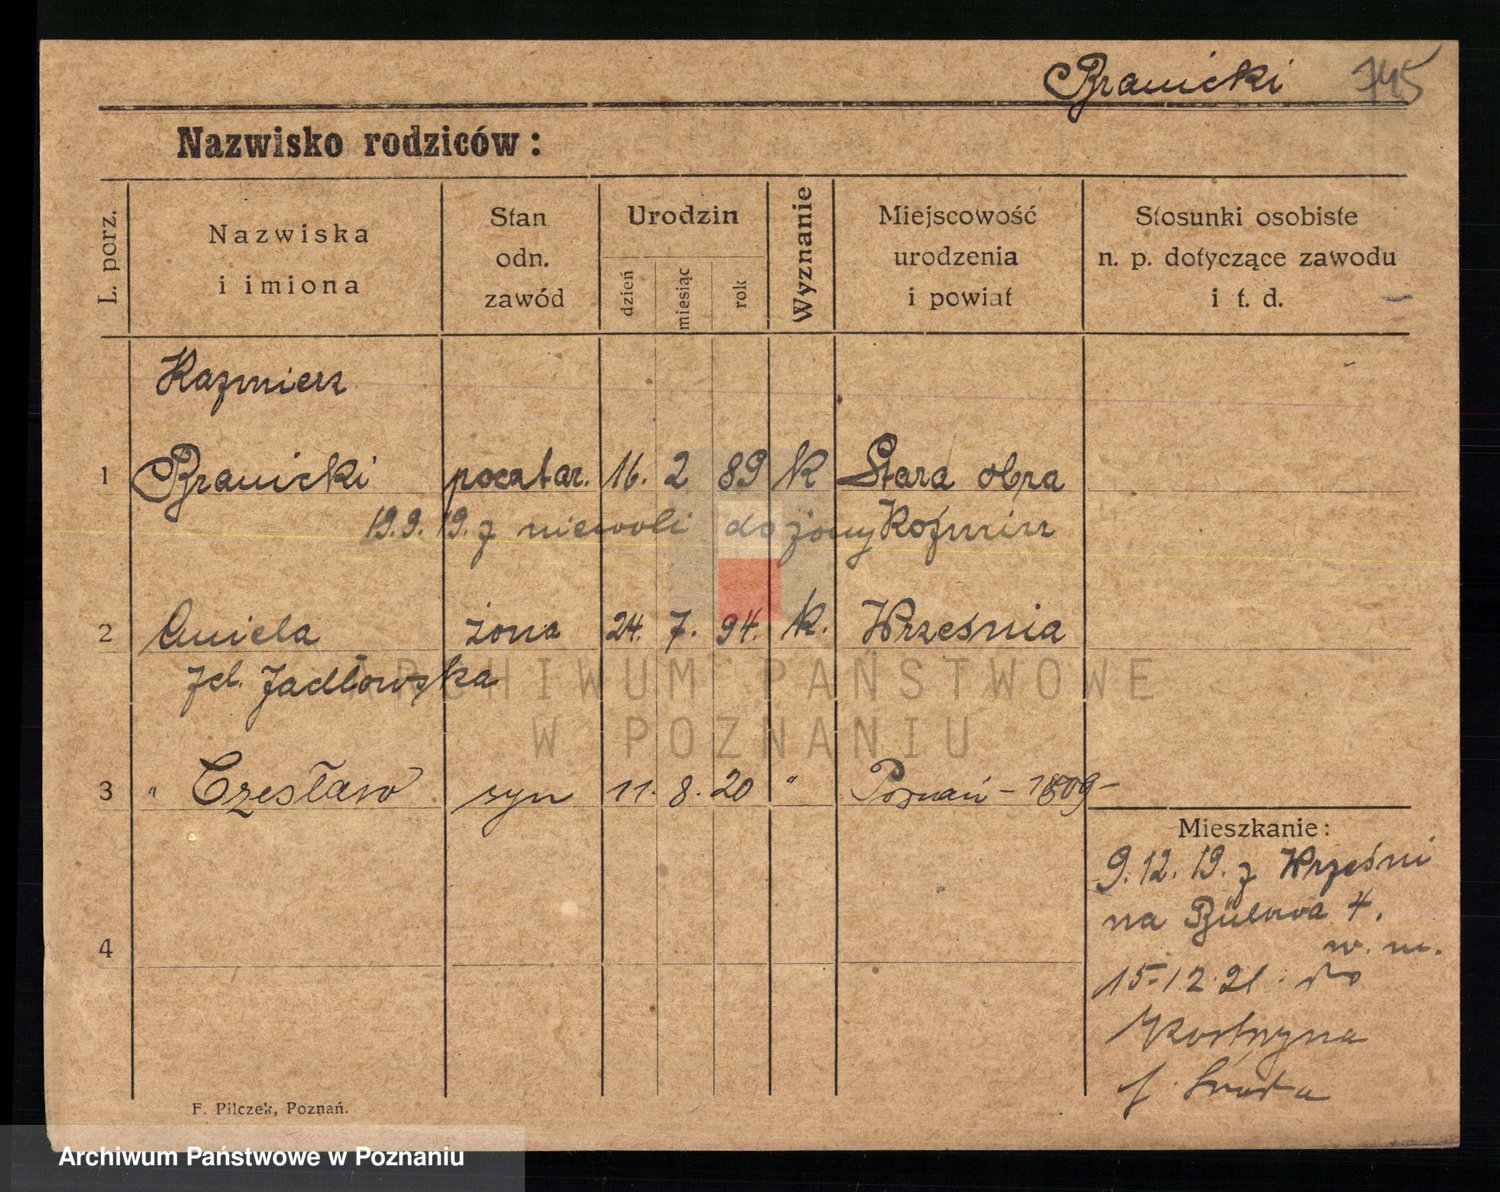 Branicki 745
Nazwisko rodziców:
L. porz.
Nazwiska
i imiona
Stan
odn.
zawód
Urodzin
dzień
miesiąc
rok
Wyznanie
Miejscowość
urodzenia
i powiat
Stosunki osobiste
n. p. dotyczące zawodu
i t. d.
Kazmierz
1 Branicki pocztar. 16. 2 89 k Stara obra
19.9.19. z niewoli do żony Koźmin
2 Aniela żona 24. 7. 94. k. Września
zd. Jadłowska
3 " Czesław syn 11. 8. 20 " Poznań - 1809 -
4
Mieszkanie:
9.12.19. z Wrześni
na Bülowa 4.
w. m.
15.12.21. do
Kostrzyna
Środa
F. Pilczek, Poznań.
ARCHIWUM PAŃSTWOWE
W POZNANIU
Archiwum Państwowe w Poznaniu